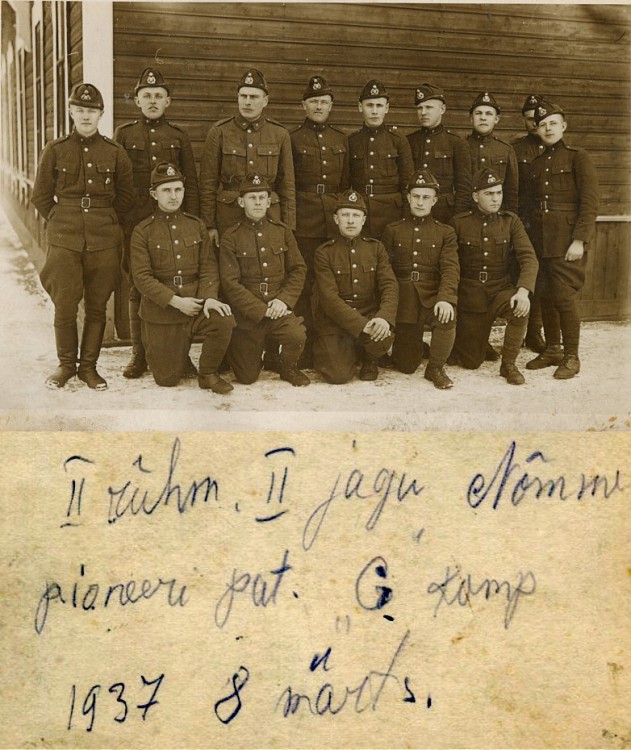 II rühm. II jagu Nõmme
pioneeri pat. „G" komp
1937 8 märts.